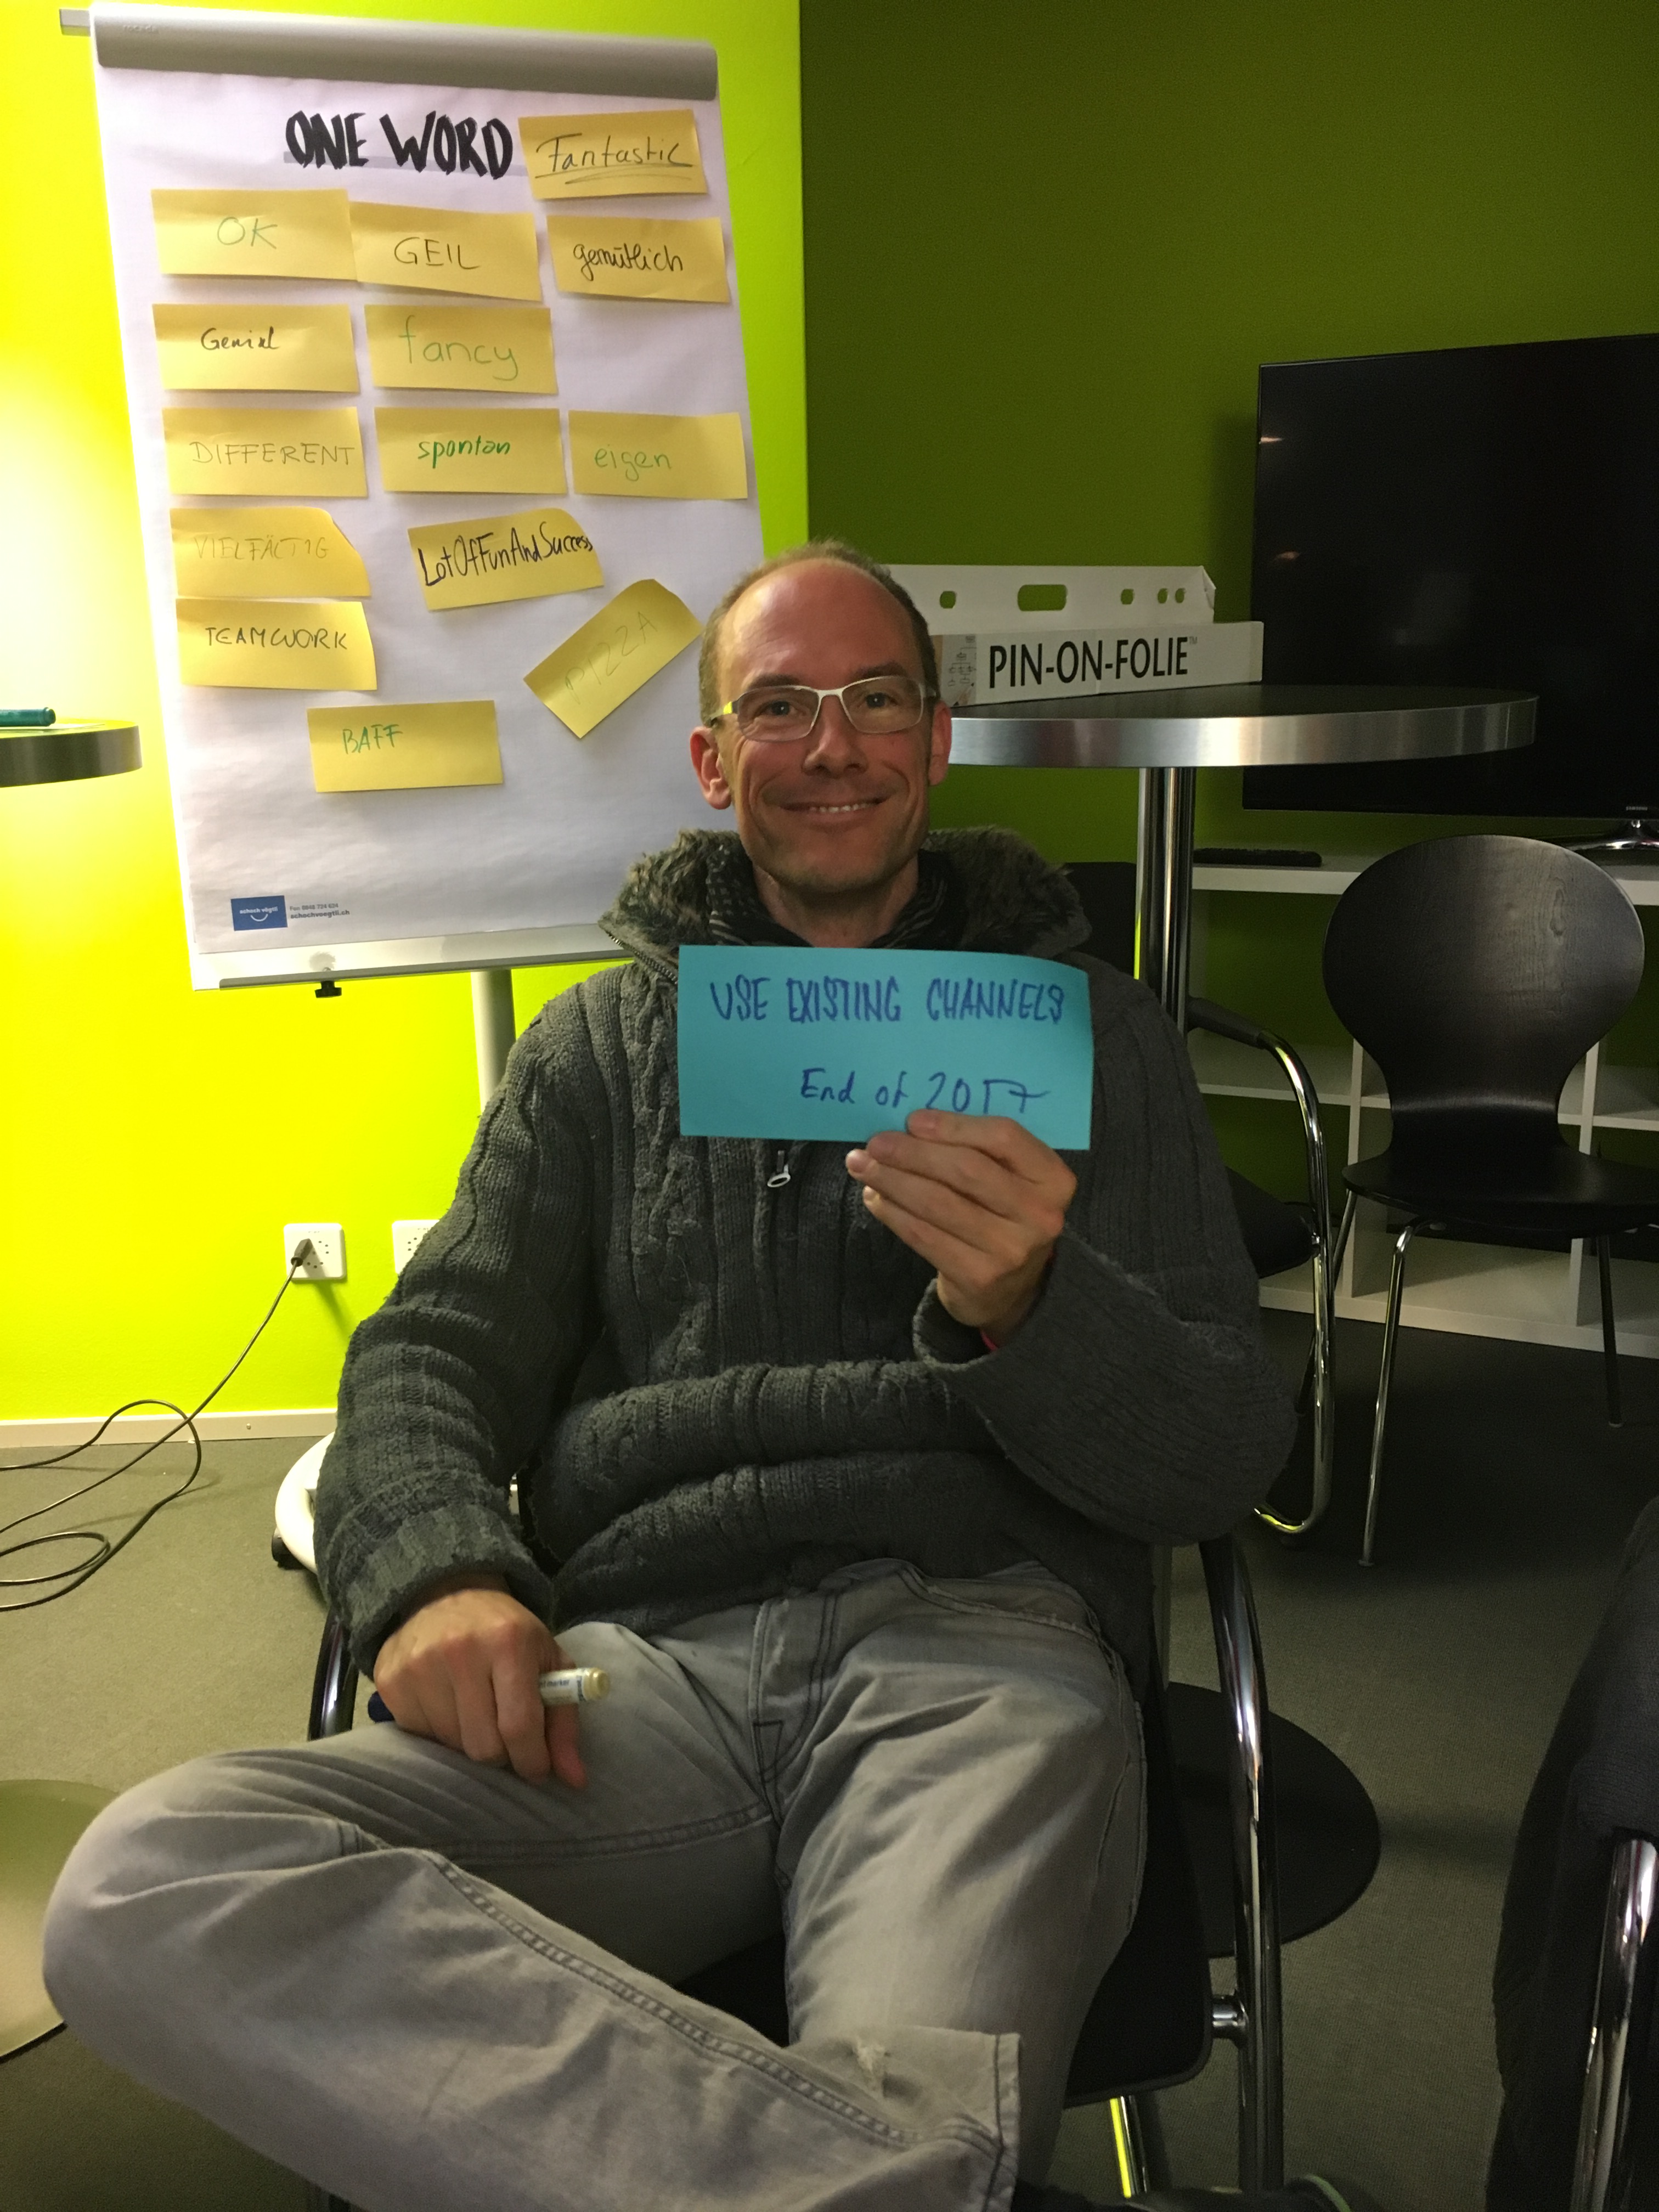 ONE WORD
Fantastic
OK
GEIL
gemütlich
Genial
fancy
DIFFERENT
spontan
eigen
VIELFÄLTIG
LotOfFunAndSuccess
TEAMWORK
PIZZA
BAFF
schoch vögtli
Fax 0848 724 624
schochvoegtli.ch
PIN-ON-FOLIE™
USE EXISTING CHANNELS
End of 2017